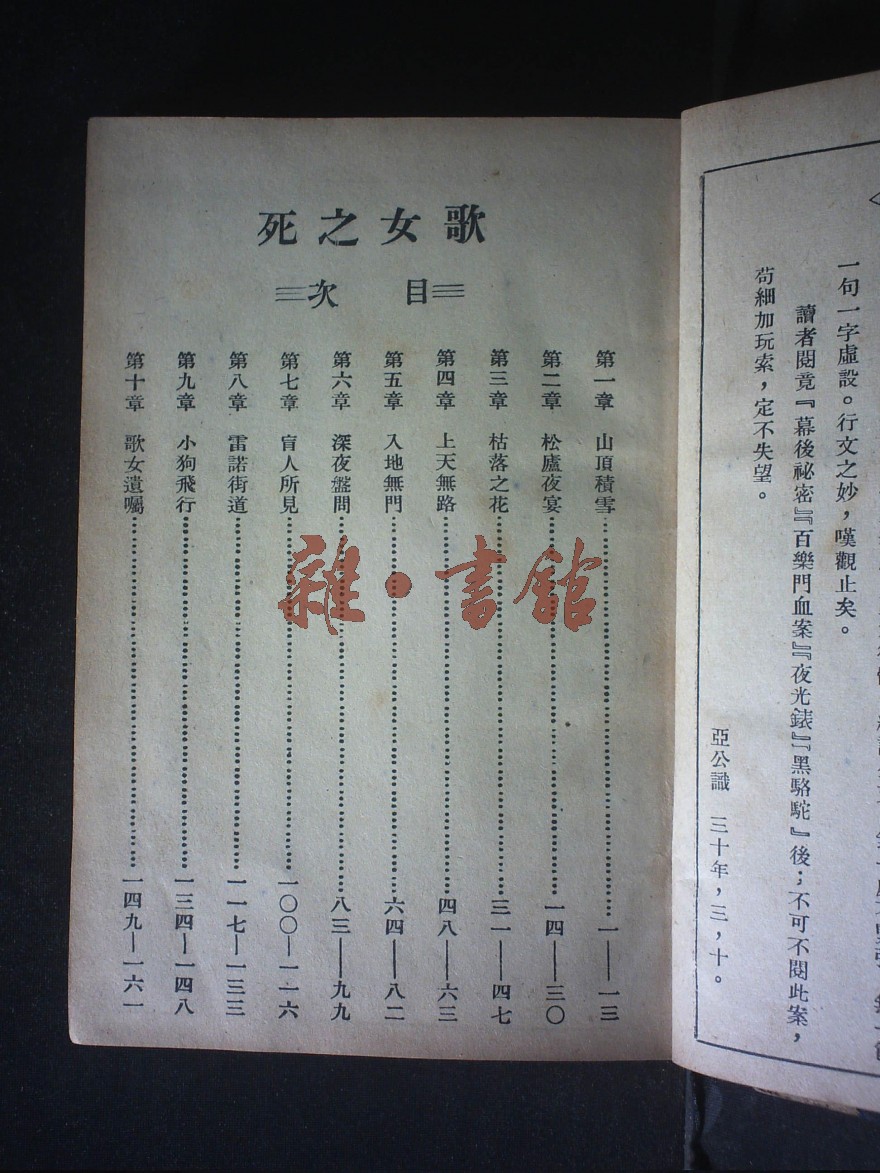 一句一字虛設。行文之妙，嘆觀止矣。
讀者閱竟『幕後祕密』『百樂門血案』『夜光錶』『黑駱駝』後；不可不閱此案，
苟細加玩索，定不失望。
亞公識　三十年，三，十。
歌女之死
目次
第一章　山頂積雪……一——一三
第二章　松廬夜宴……一四——三〇
第三章　枯落之花……三一——四七
第四章　上天無路……四八——六三
第五章　入地無門……六四——八二
第六章　深夜盤問……八三——九九
第七章　盲人所見……一〇〇—一一六
第八章　雷諾街道……一一七—一三三
第九章　小狗飛行……一三四—一四八
第十章　歌女遺囑……一四九—一六一
雜·書館